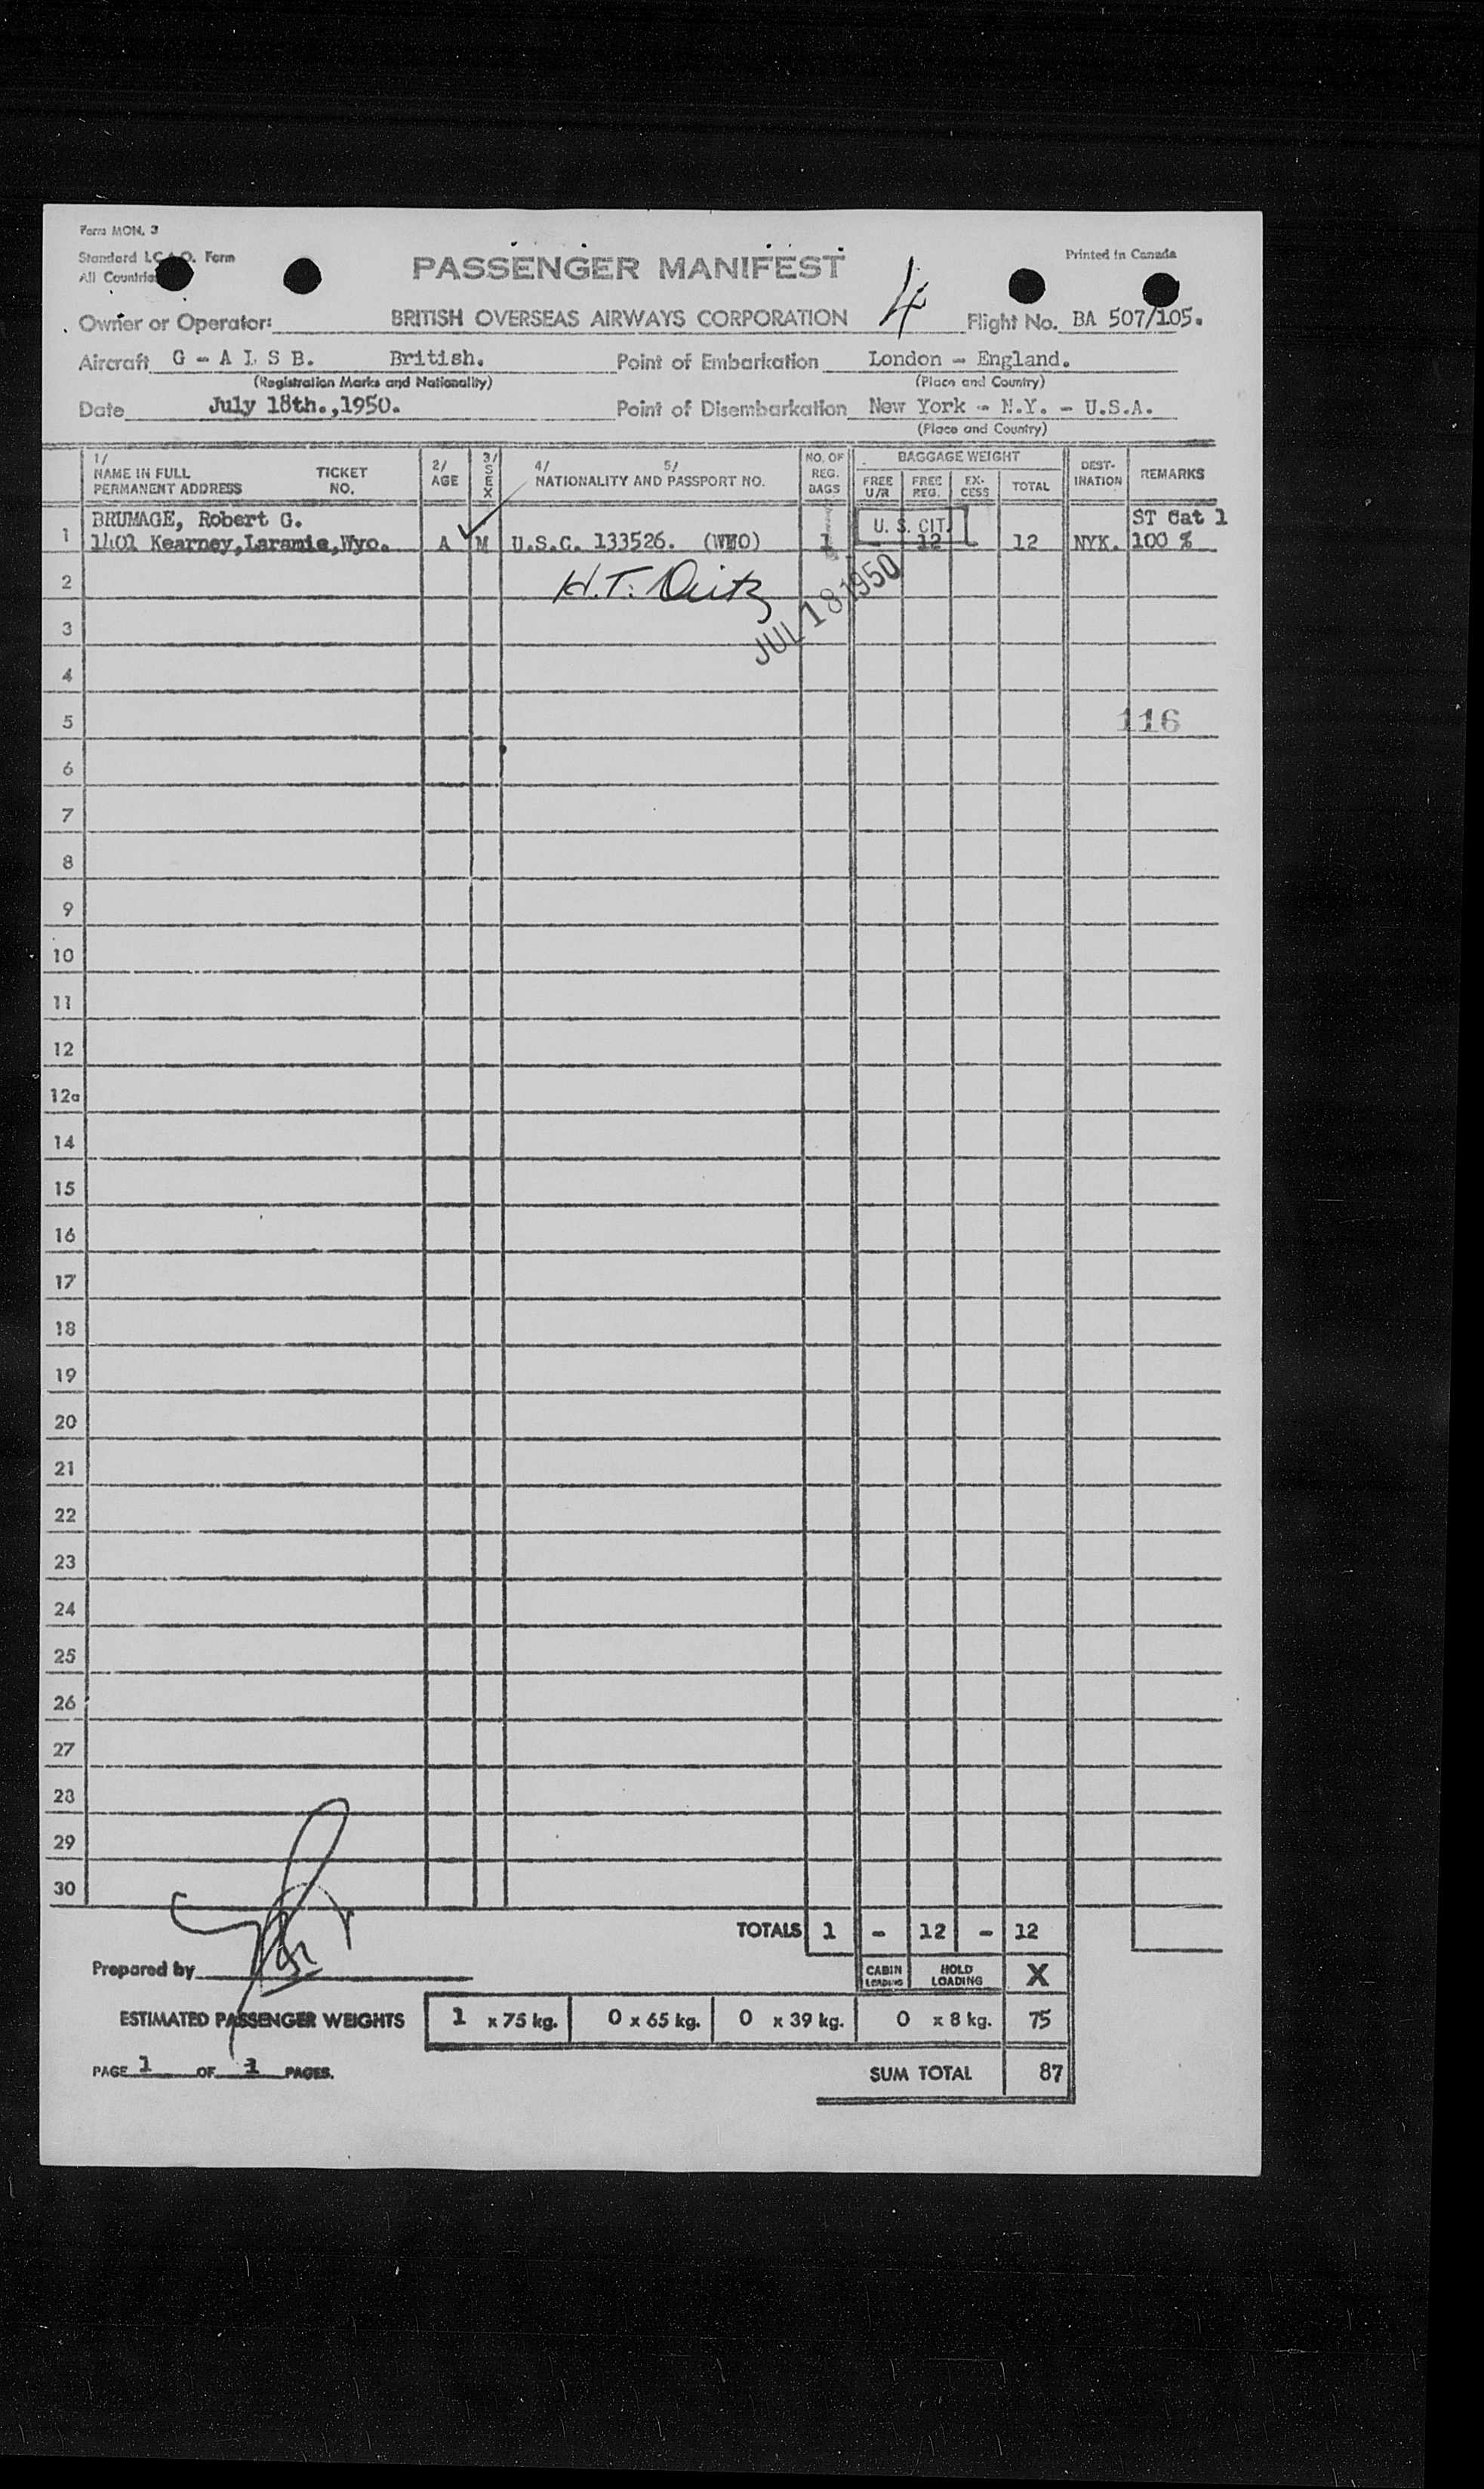 Form MON. 3
Standard I.C.A.O. Form
All Countries
PASSENGER MANIFEST
4
Printed in Canada
Owner or Operator: BRITISH OVERSEAS AIRWAYS CORPORATION Flight No. BA 507/105.
Aircraft G - A L S B. British. Point of Embarkation London - England.
(Registration Marks and Nationality) (Place and Country)
Date July 18th.,1950. Point of Disembarkation New York - N.Y. - U.S.A.
(Place and Country)
1/ NAME IN FULL PERMANENT ADDRESS TICKET NO. 2/ AGE 3/ SEX 4/ 5/ NATIONALITY AND PASSPORT NO. NO. OF REG. BAGS BAGGAGE WEIGHT FREE U/R FREE REG. EX-CESS TOTAL DEST-INATION REMARKS
BRUMAGE, Robert G. U. S. CIT. ST Cat 1
1 1401 Kearney,Laramie,Wyo. A M U.S.C. 133526. (WHO) 1 - 12 - 12 NYK. 100 %
2 H.T. Deitz
JUL 18 1950
3
4
5 116
6
7
8
9
10
11
12
12a
14
15
16
17
18
19
20
21
22
23
24
25
26
27
28
29
30
TOTALS 1 - 12 - 12
Prepared by CABIN LOADING HOLD LOADING X
ESTIMATED PASSENGER WEIGHTS 1 x 75 kg. 0 x 65 kg. 0 x 39 kg. 0 x 8 kg. 75
PAGE 1 OF 1 PAGES. SUM TOTAL 87